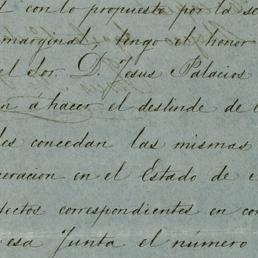 con lo propuesto por la se
marginal, tengo el honor
el Sor. D. Jesus Palacios
n á hacer el deslinde de
les concedan las mismas
eracion en el Estado de
ectos correspondientes en con
esa Junta el número